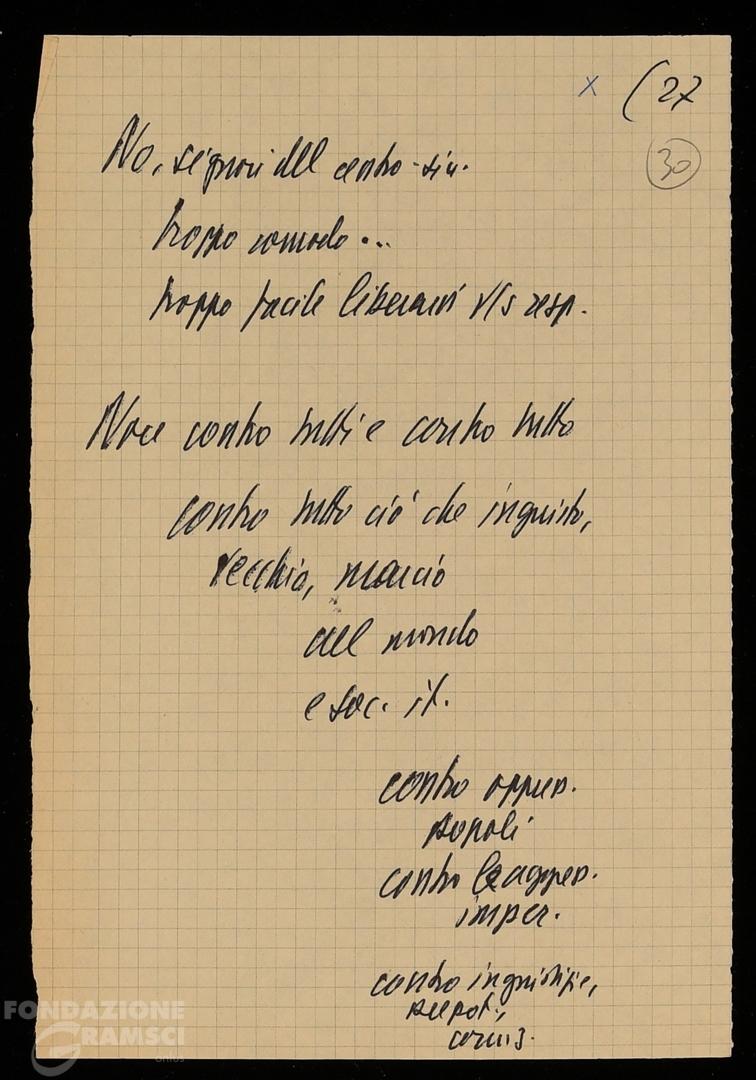 x (27
30
No, signori del centro-sin.
troppo comodo...
troppo facile liberarvi v/s resp.
Noce contro tutti e contro tutto
contro tutto ciò che ingiusto,
vecchio, marcio
del mondo
e soc. it.
contro oppres.
popoli
contro aggres.
imper.
contro ingiustizie,
FONDAZIONE
GRAMSCI
onlus